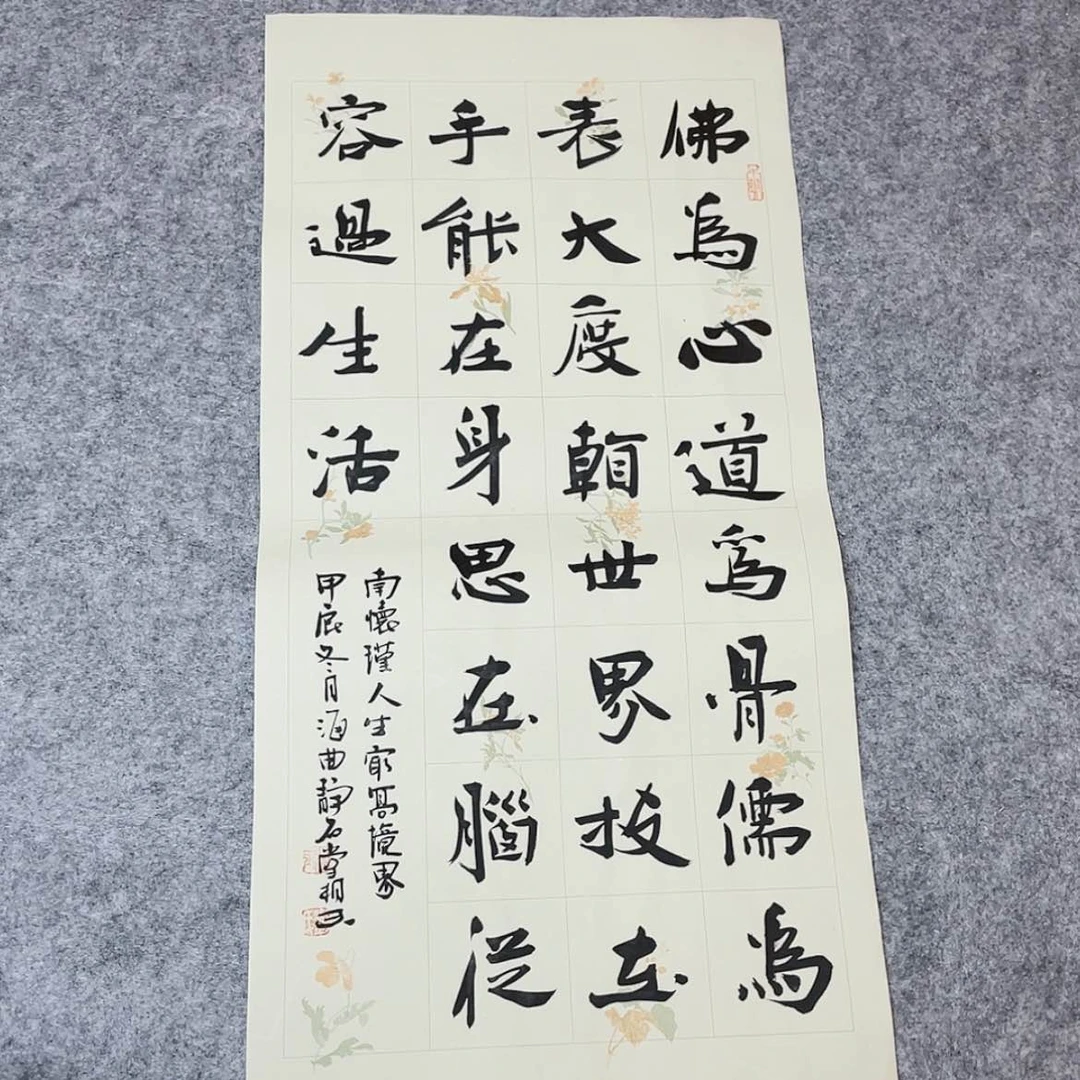 佛爲心道爲骨儒爲
表大度看世界技在
手能在身思在腦從
容過生活
南懷瑾人生最高境界
甲辰冬月海曲靜石堂